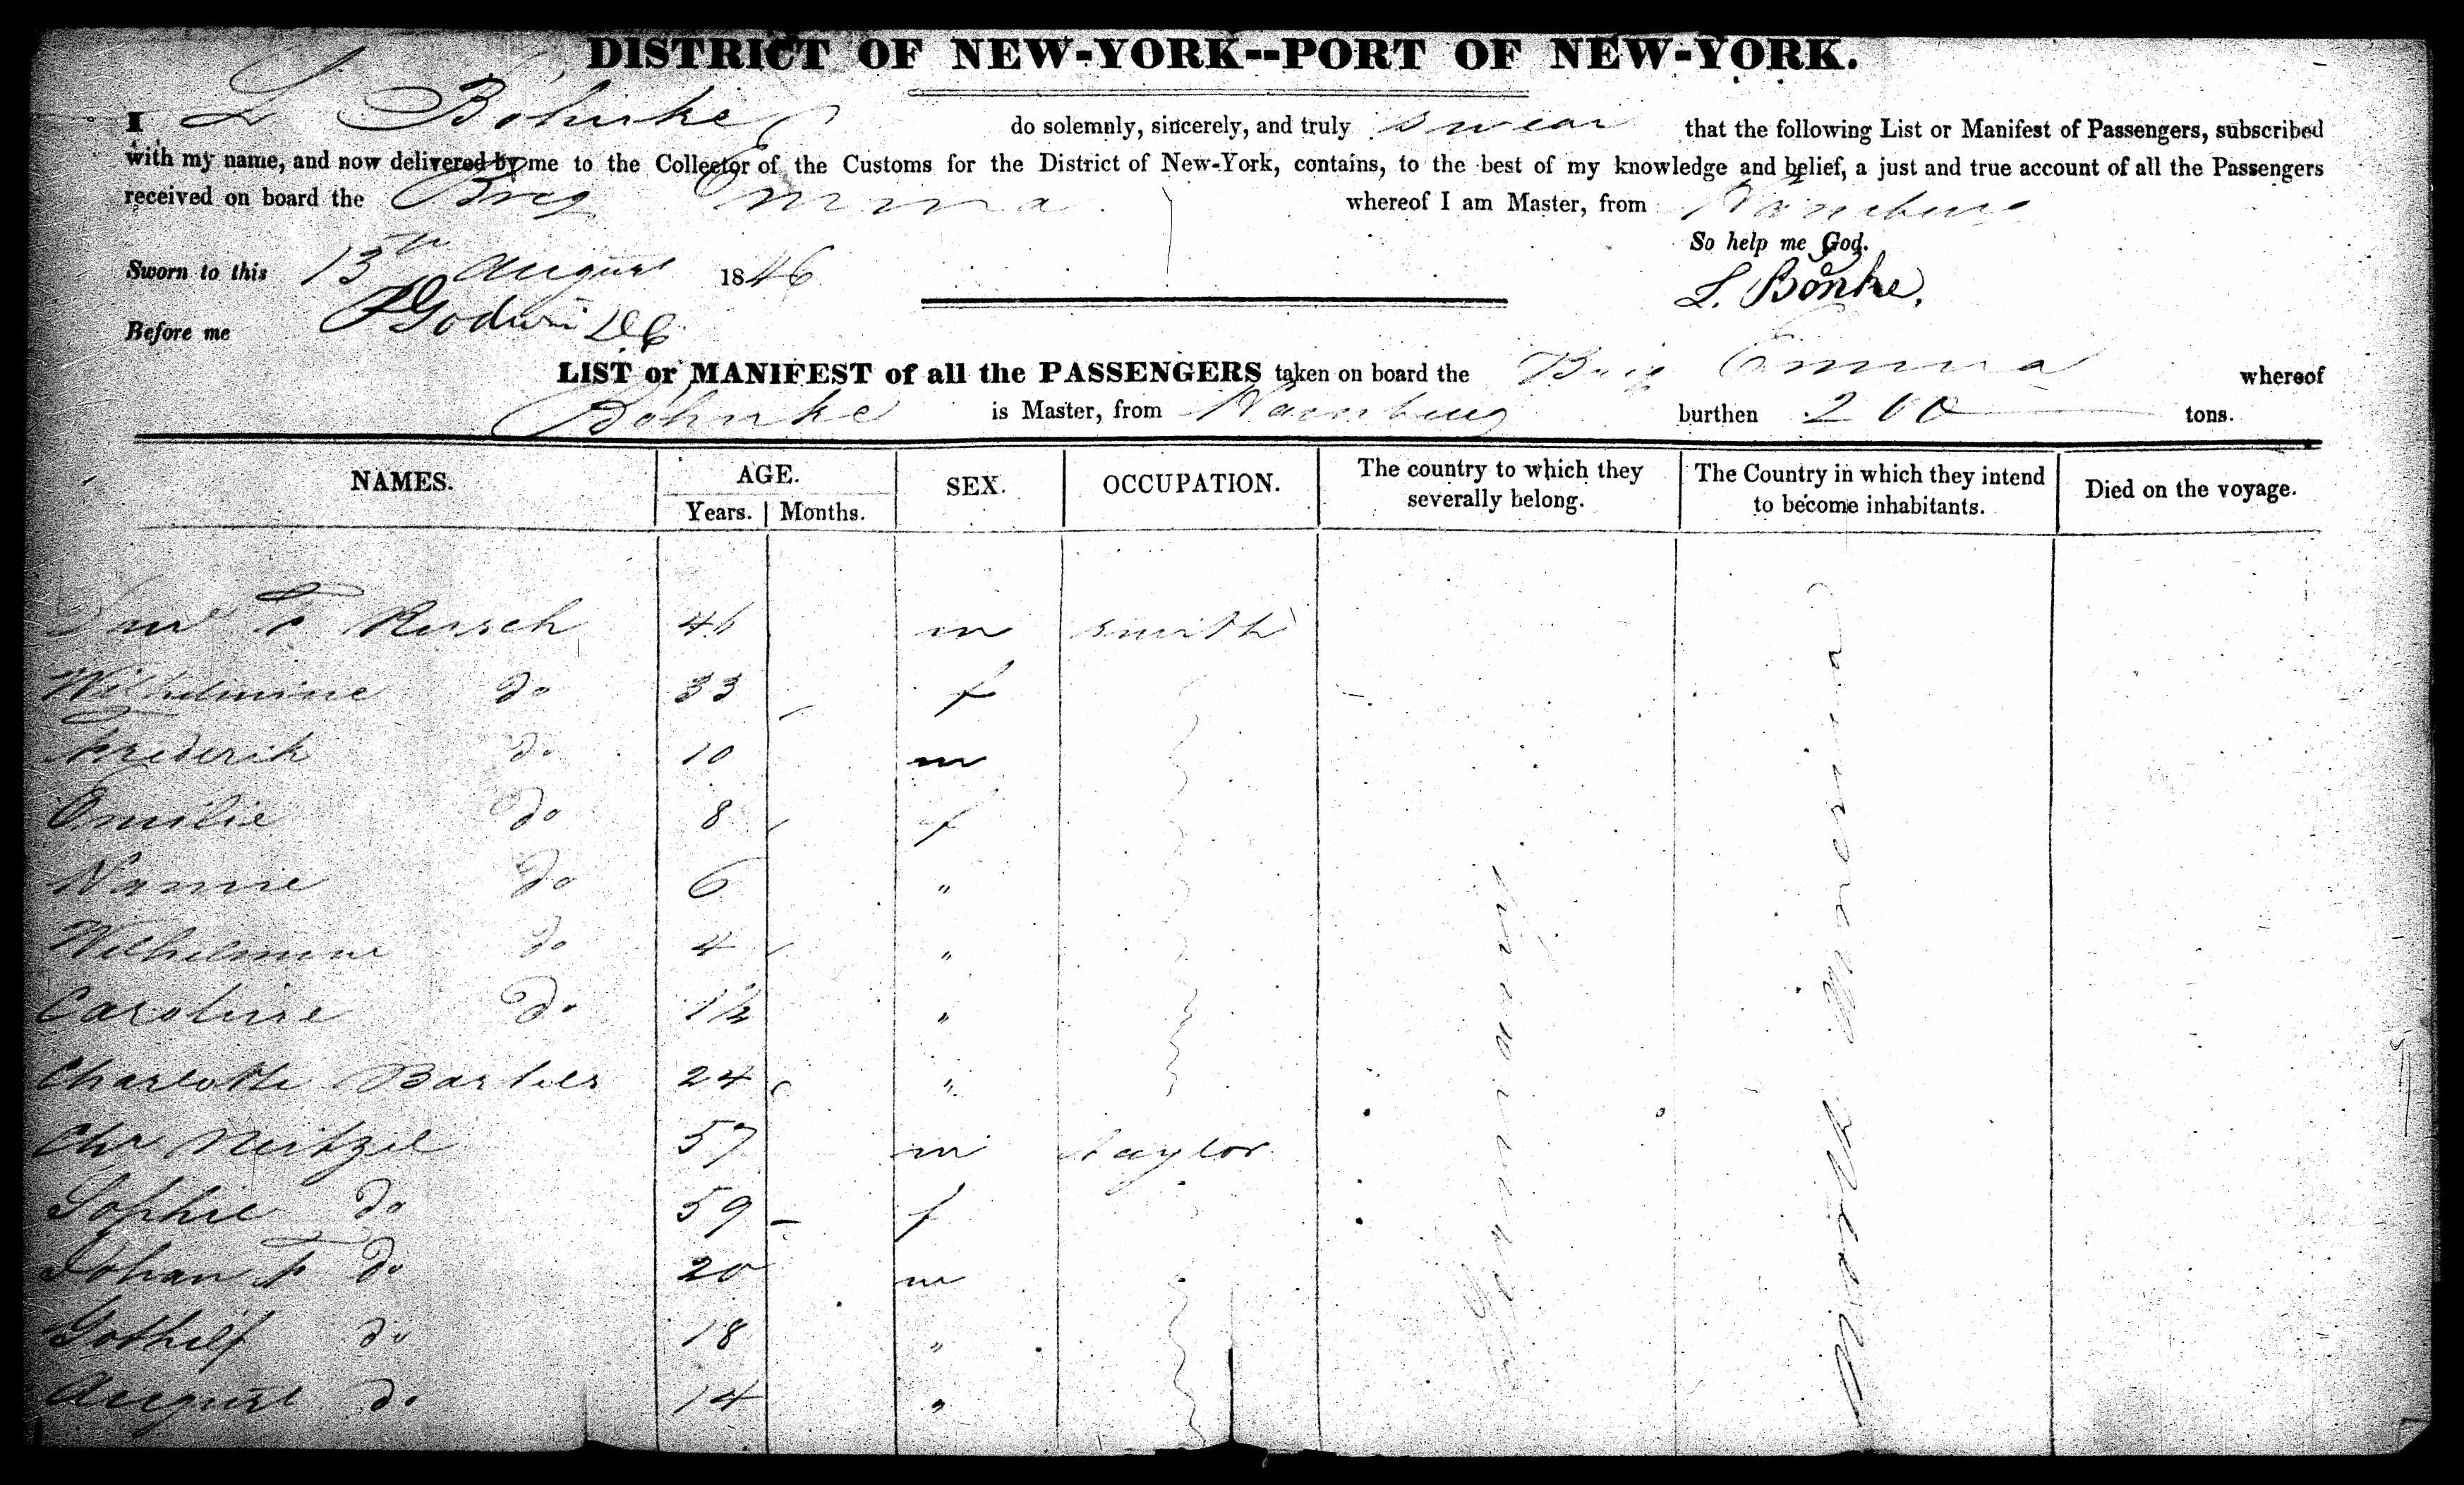 DISTRICT OF NEW-YORK--PORT OF NEW-YORK.
I L Bohnke do solemnly, sincerely, and truly swear that the following List or Manifest of Passengers, subscribed
with my name, and now delivered by me to the Collector of the Customs for the District of New-York, contains, to the best of my knowledge and belief, a just and true account of all the Passengers
received on board the Brig Emma whereof I am Master, from Hamburg
So help me God.
Sworn to this 13th August 1846
L. Bönke.
Before me Godwin
LIST or MANIFEST of all the PASSENGERS taken on board the Brig Emma whereof
Bohnke is Master, from Hamburg burthen 200 tons.
NAMES. AGE. Years. Months. SEX. OCCUPATION. The country to which they severally belong. The Country in which they intend to become inhabitants. Died on the voyage.
F 46 m smith
Wilhelmine do 33 f
Frederik do 10 m
Emilie do 8 f
do 6 "
Wilhelmine do 4 "
Caroline do 1½ "
Charlotte Bartels 24 "
Chr Neitzel 57 m taylor
Sophie do 59 f
Johan F do 20 m
Gothilf do 18 "
August do 14 "
Germany
North America